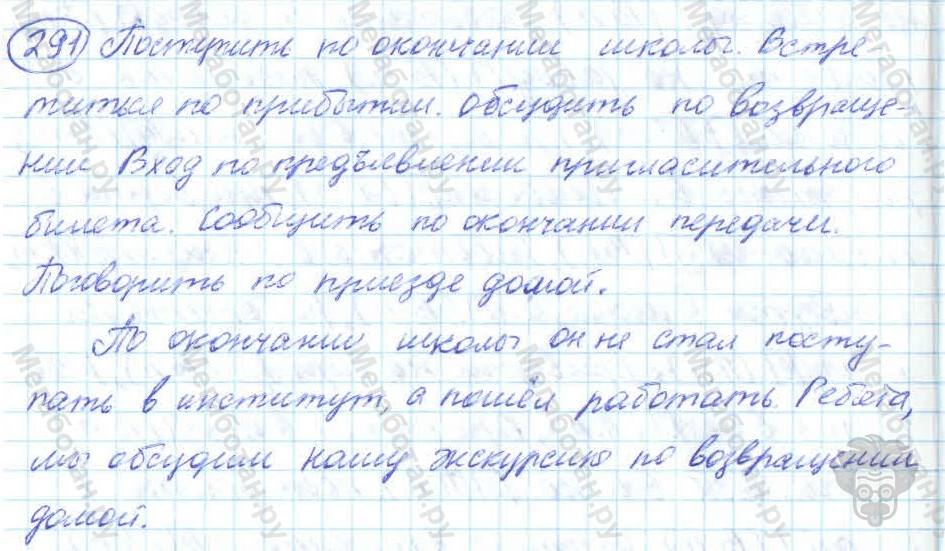 291 Поступить по окончании школы. Встре-
титься по прибытии. Обсудить по возвраще-
нии. Вход по предъявлении пригласительного
билета. Сообщить по окончании передачи.
Поговорить по приезде домой.
По окончании школы он не стал посту-
пать в институт, а пошёл работать. Ребята,
мы обсудим нашу экскурсию по возвращении
домой.